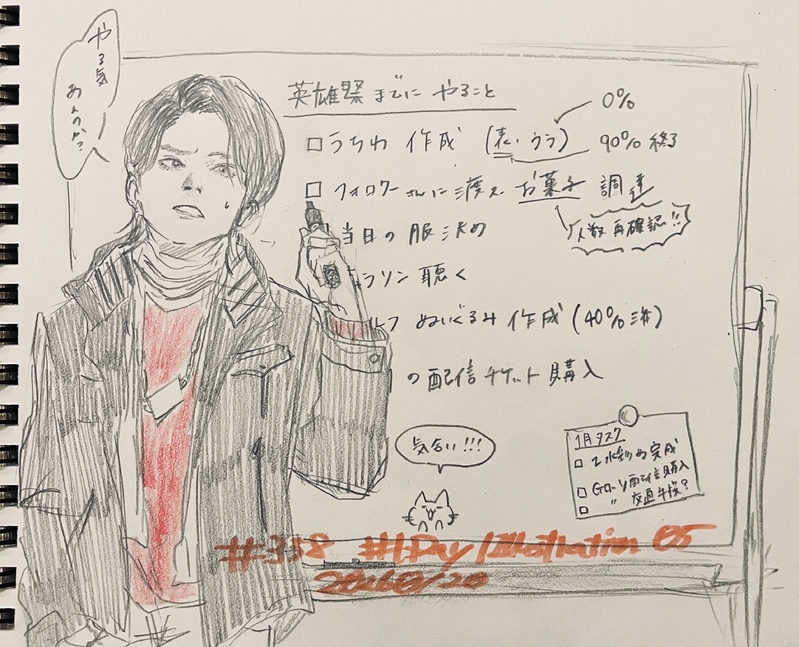 やる気
あんのか?
英雄祭までに やること
0%
□うちわ 作成 (表・ウラ)
90% 終了
□ フォロワーさんに渡す お菓子 調達
人数 再確認!!
当日の服決め
ラソン 聴く
ルフ ぬいぐるみ 作成 (40% 済)
の配信チケット購入
気合い!!!
1月タスク
□
完成
□
配信購入
□ 〃
#338 #1Day1Illustration 05